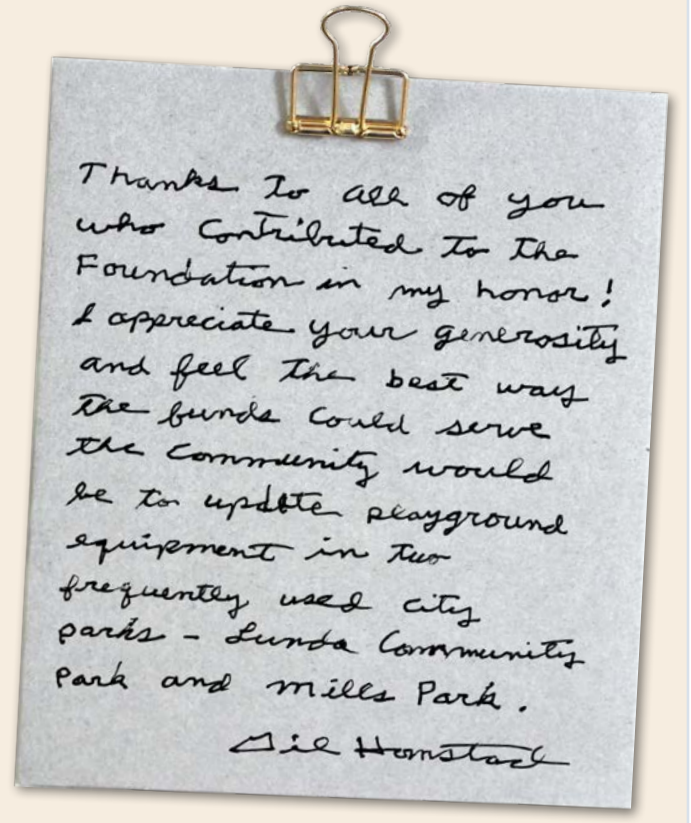 Thanks to all of you
who contributed to the
Foundation in my honor!
I appreciate your generosity
and feel the best way
the funds could serve
the community would
be to update playground
equipment in two
frequently used city
parks - Lunda Community
Park and Mills Park.
Gil Homstad